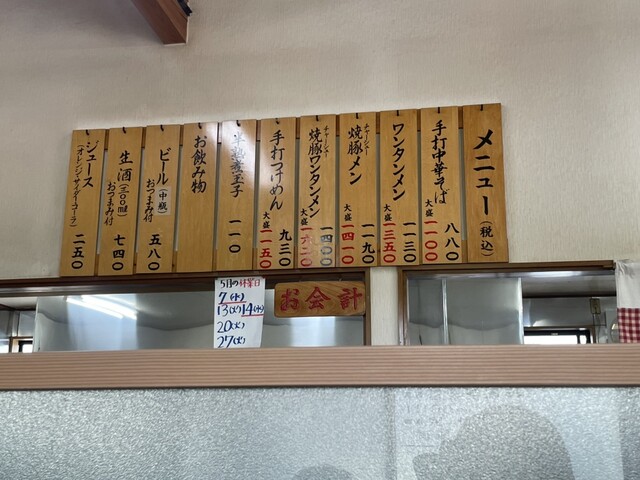 メニュー(税込)
手打中華そば 八八〇
大盛 一一〇〇
ワンタンメン 一一三〇
大盛 一三五〇
チャーシュー
焼豚メン 一一九〇
大盛 一四一〇
チャーシュー
焼豚ワンタンメン 一四〇〇
大盛 一六二〇
手打つけめん 九三〇
大盛 一一五〇
半熟煮玉子 一一〇
お飲み物
ビール(中瓶)
おつまみ付 五八〇
生酒(300ml)
おつまみ付 七四〇
ジュース
(オレンジ・サイダー・コーラ) 二五〇
お会計
5月の休業日
7(水)
13(火)14(水)
20(火)
27(火)